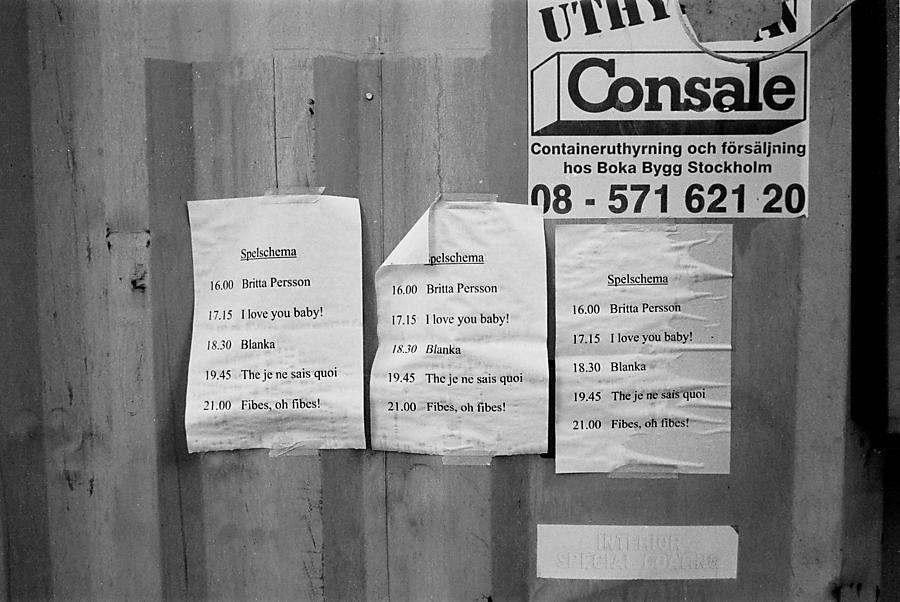 UTHY AV
Consale
Containeruthyrning och försäljning
hos Boka Bygg Stockholm
08 - 571 621 20
Spelschema
16.00 Britta Persson
17.15 I love you baby!
18.30 Blanka
19.45 The je ne sais quoi
21.00 Fibes, oh fibes!
pelschema
16.00 Britta Persson
17.15 I love you baby!
18.30 Blanka
19.45 The je ne sais quoi
21.00 Fibes, oh fibes!
Spelschema
16.00 Britta Persson
17.15 I love you baby!
18.30 Blanka
19.45 The je ne sais quoi
21.00 Fibes, oh fibes!
INTERIOR
SPECIAL COATING